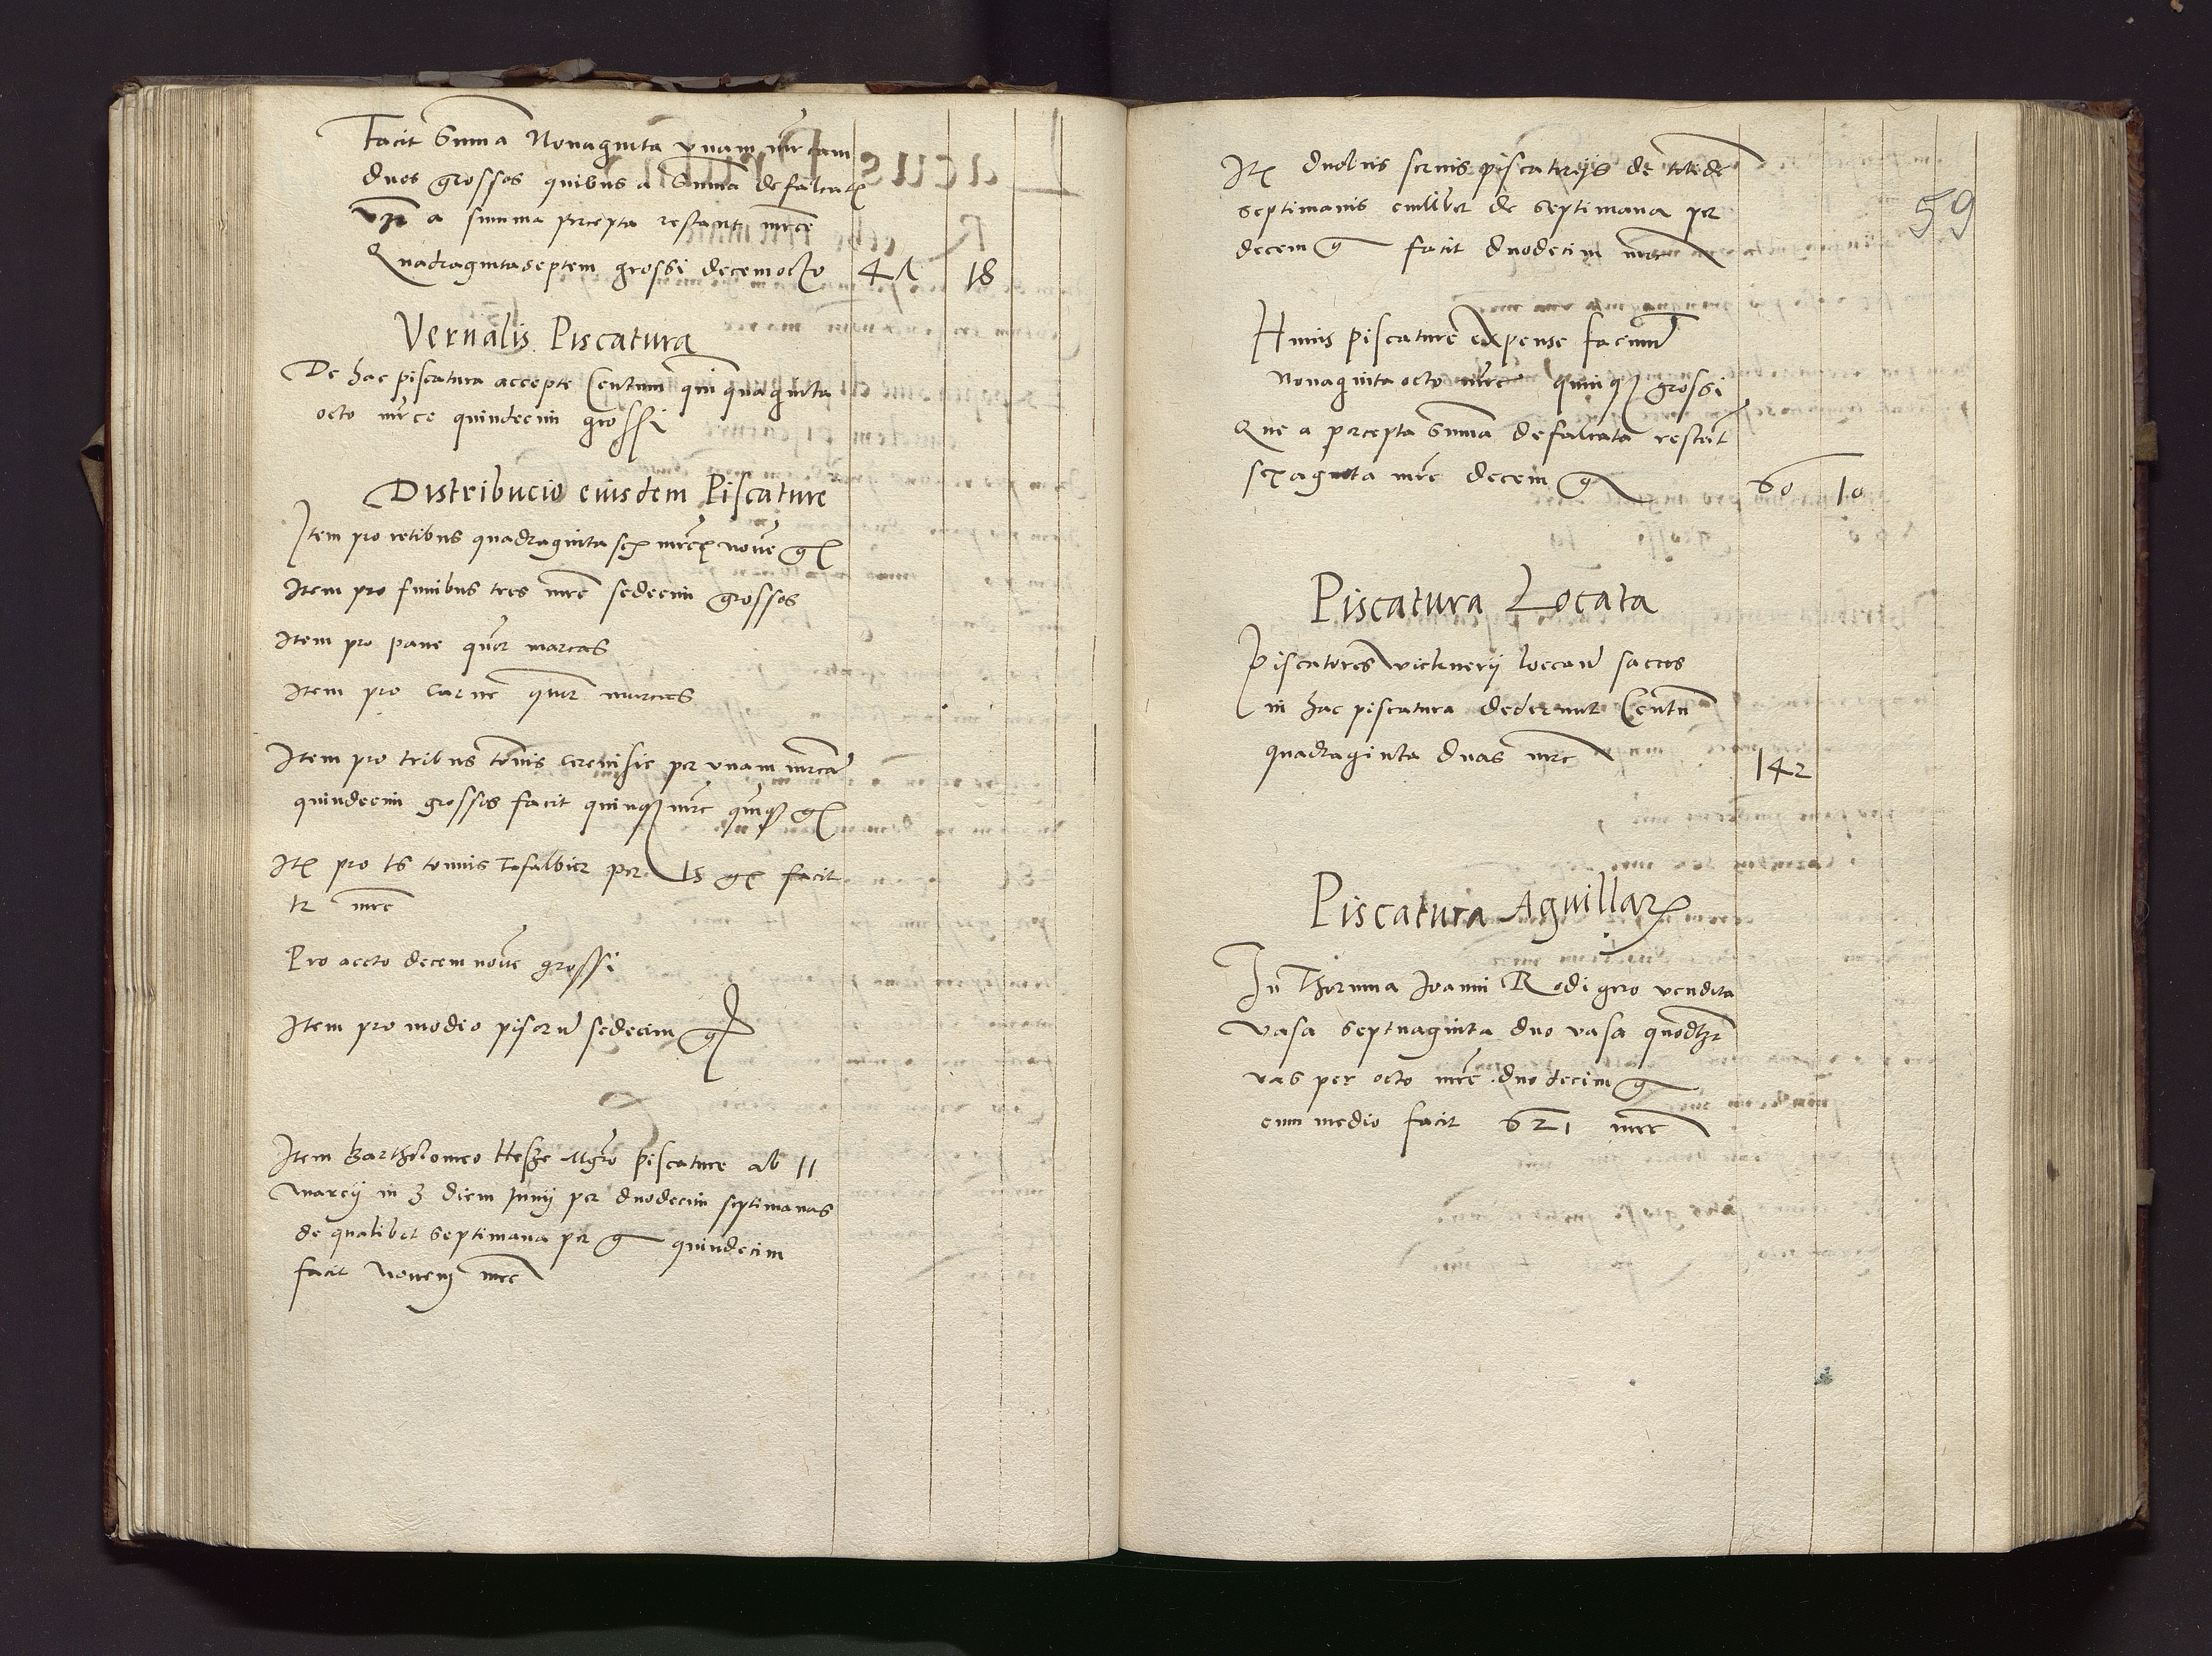 Facit Suma Nonaginta vnam mrcam
duos grossos quibus a Suma defalcatz
vz a summa percepta restant mrce
Quadragintaseptem grossi decemocto 47 18
Vernalis Piscatura
De hac piscatura accepte Centum quinquaginta
octo mrce quindecim grossi
Distribucio eiusdem Piscature
Item pro retibus quadraginta sex mrce noue g
Item pro funibus tres mrc sedecim grossos
Item pro pane quor marcas
Item pro carne quor marcas
Item pro tribus tonnis cereuisie per vnam mrca
quindecim grossos facit quinq mrc quiq g
Itz pro 16 tonnis Tafalbier per 15 g facit
12 mrc
Pro aceto decem noue grossi
Item pro modio pisoru sedecim g
Item Bartholomeo Hesze Mgro piscature ab 11
Marcij in 3 diem Junij per duodecim septimanas
de qualibet septimana per g quindecim
facit Nouem mrc
59
Itz duobus seruis piscatorijs de totide
septimanis cuilibet de septimana per
decem g facit duodecim mrc
Huius piscature expense faciunt
Nonaginta octo mrc quinq grossi
Que a percepta Suma defalcata restat
sexaginta mrc decem g 60 10
Piscatura Locata
Piscatores locaru saccos
in hac piscatura dederunt Centu
quadraginta duas mrc 142
Piscatura Aguillarz
In Thorunia Joanni Redigero vendita
vasa septuaginta duo vasa quodlzt
vas per octo mrc duodecim g
cum medio facit 621 mrc